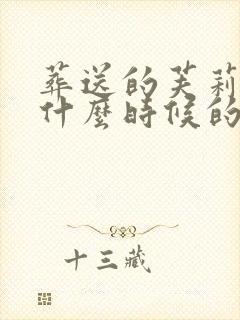 葬送的芙莉
什麼時候的
十三藏